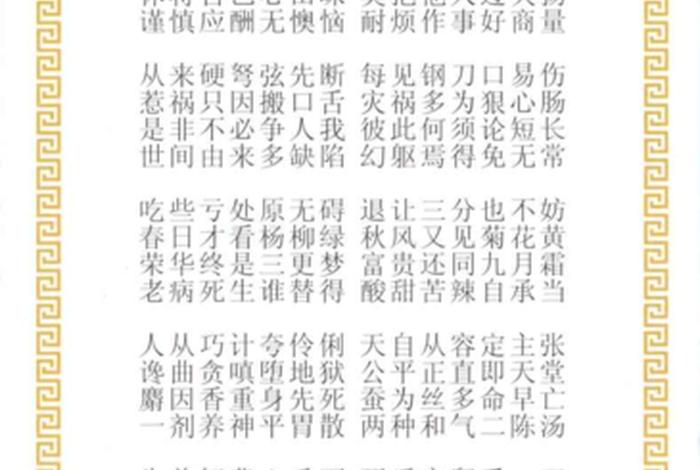 谨慎应酬无懊恼 耐烦作事好商量
从来硬弩弦先断 每见钢刀口易伤
惹祸只因搬口舌 灾祸多为狠心肠
是非不必争人我 彼此何须论短长
世间由来多缺陷 幻躯焉得免无常
吃些亏处原无碍 退让三分也不妨
春日才看杨柳绿 秋风又见菊花黄
荣华终是三更梦 富贵还同九月霜
老病死生谁替得 酸甜苦辣自承当
人从巧计夸伶俐 天自从容定主张
谗曲贪嗔堕地狱 公平正直即天堂
麝因香重身先死 蚕为丝多命早亡
一剂养神平胃散 两种和气二陈汤